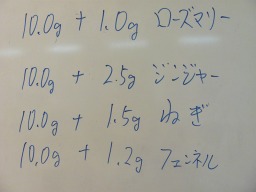 10.0g + 1.0g ローズマリー
10.0g + 2.5g ジンジャー
10.0g + 1.5g ねぎ
10.0g + 1.2g フェンネル